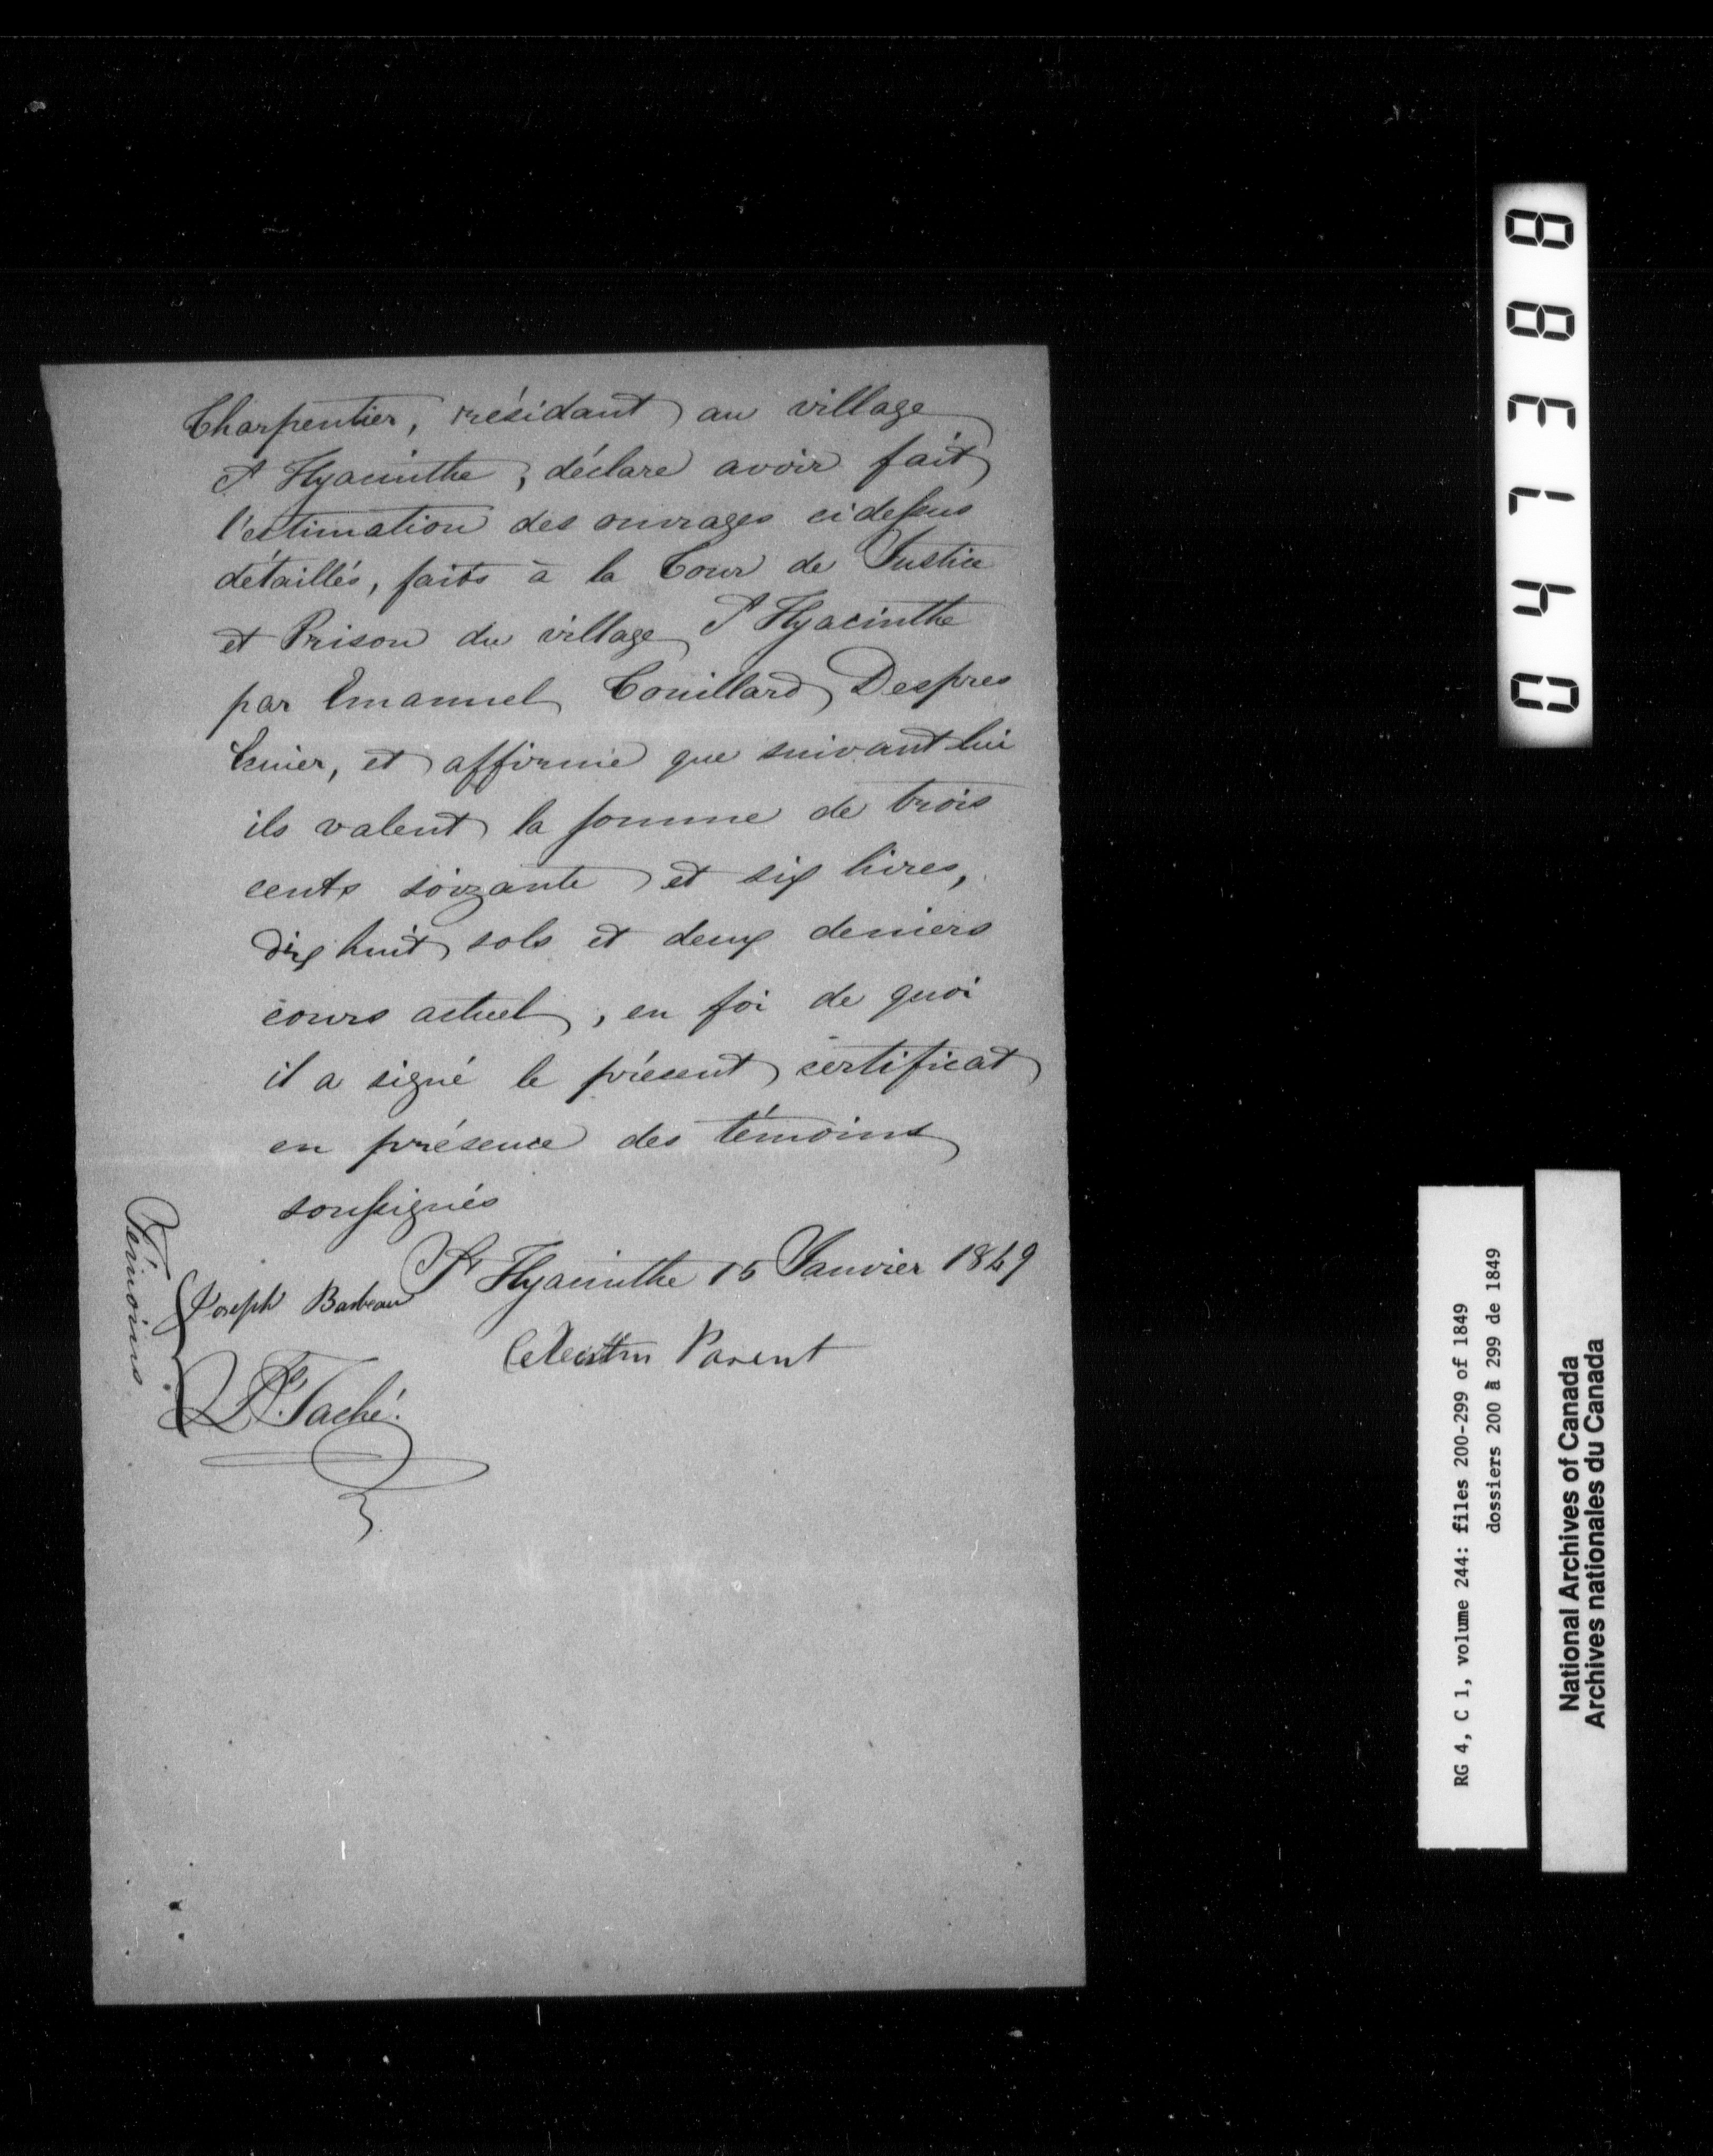 Charpentier, résidant au village
St Hyacinthe, déclare avoir fait
l'estimation des ouvrages cidessus
détaillés, faits à la Cour de Justice
et Prison du village St Hyacinthe
par Emanuel Couillard Despres
Ecuier, et affirme que suivant lui
ils valent la somme de trois
cents soixante et six livres,
dix huit sols et deux deniers
cours actuel, en foi de quoi
il a signé le présent certificat
en présence des témoins
soussignés
St Hyacinthe 15 Janvier 1849
Témoins
Joseph Barbeau
Parent
Taché.
0471388
RG 4, C 1, volume 244: files 200-299 of 1849
dossiers 200 à 299 de 1849
National Archives of Canada
Archives nationales du Canada